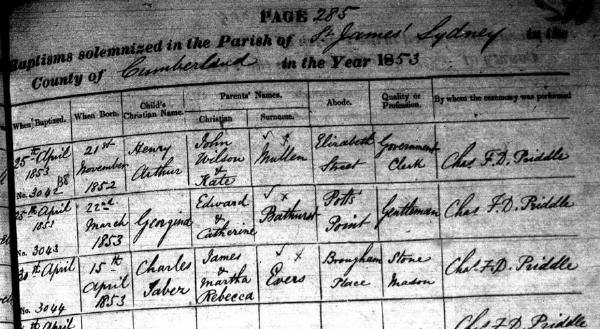 PAGE 285
Baptisms solemnized in the Parish of St. James' Sydney in the
County of Cumberland in the Year 1853
When Baptized. When Born. Child's Christian Name. Parents' Names. Christian Surname. Abode. Quality or Profession. By whom the ceremony was performed
25th April 1853 No. 3042 21st November 1852 Henry Arthur John Wilson & Kate Mullen Elizabeth Street Government Clerk Chas F.D. Priddle
25th April 1853 No. 3043 22nd March 1853 Georgina Edward & Catherine Bathurst Potts Point Gentleman Chas F.D. Priddle
April No. 3044 15th April 1853 Charles Taber James & Martha Rebecca Evers Brougham Place Stone Mason Chas F.D. Priddle
April Chas F.D. Priddle